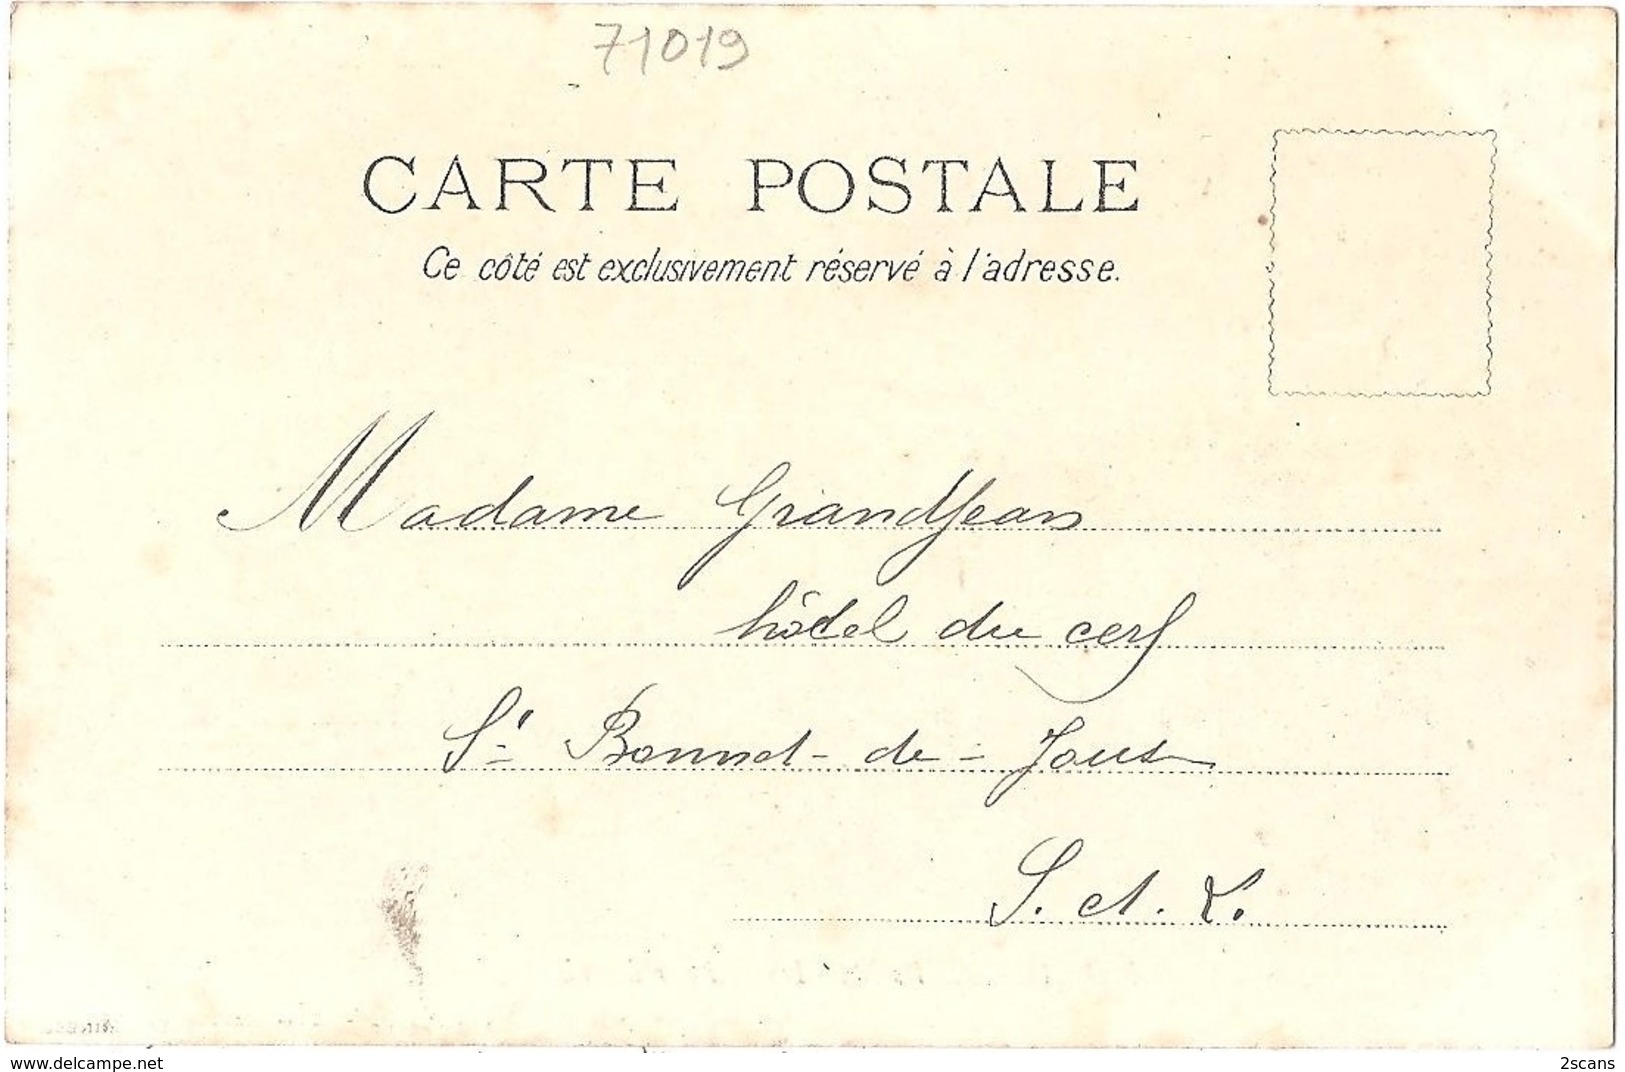 71019
CARTE POSTALE
Ce côté est exclusivement réservé à l'adresse.
Madame Grandjean
hôtel du cerf
St Bonnet-de-Joux
S. et L.
www.delcampe.net
2scans